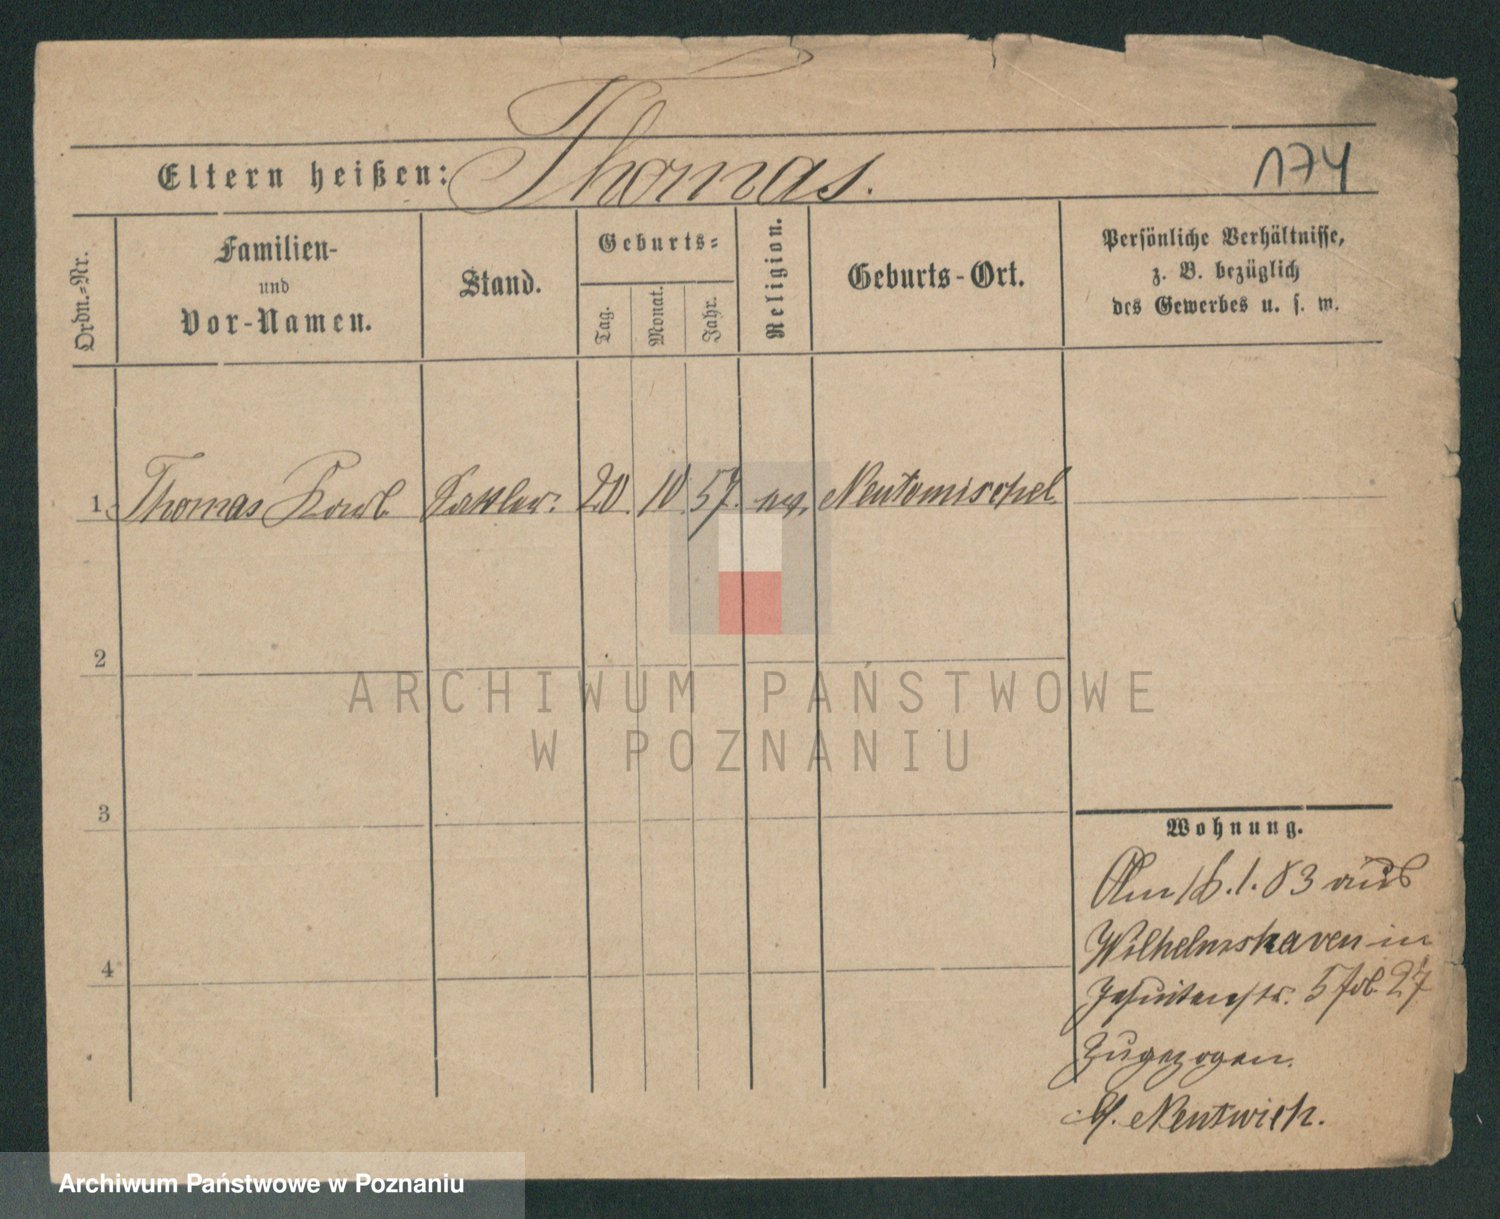 Eltern heißen: Thomas.
174
Ordn.-Nr.
Familien-
und
Vor-Namen.
Stand.
Geburts-
Tag.
Monat.
Jahr.
Religion.
Geburts-Ort.
Persönliche Verhältnisse,
z. B. bezüglich
des Gewerbes u. s. w.
1 Thomas Karl Sattler. 20. 10. 57. ev. Neutomischel
2
ARCHIWUM PAŃSTWOWE
W POZNANIU
3
4
Wohnung.
Am 16.1.83 aus
Wilhelmshaven in
Jesuitenstr. 5 Fol. 27
Zugezogen.
Neutwich.
Archiwum Państwowe w Poznaniu